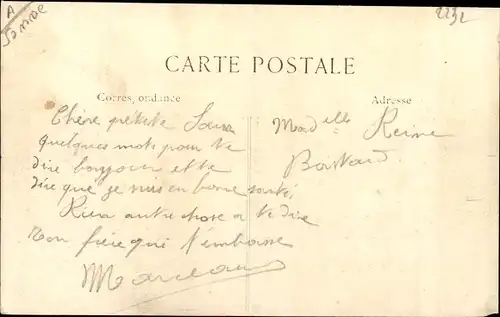 A
Somme
2232
CARTE POSTALE
Correspondance
Adresse
Chère petite Sœur
quelques mots pour te
dire bonjour et te
dire que je suis en bonne santé,
Rien autre chose a te dire
Ton frère qui t'embrasse
Marceau
Mad elle Reine
Bastard